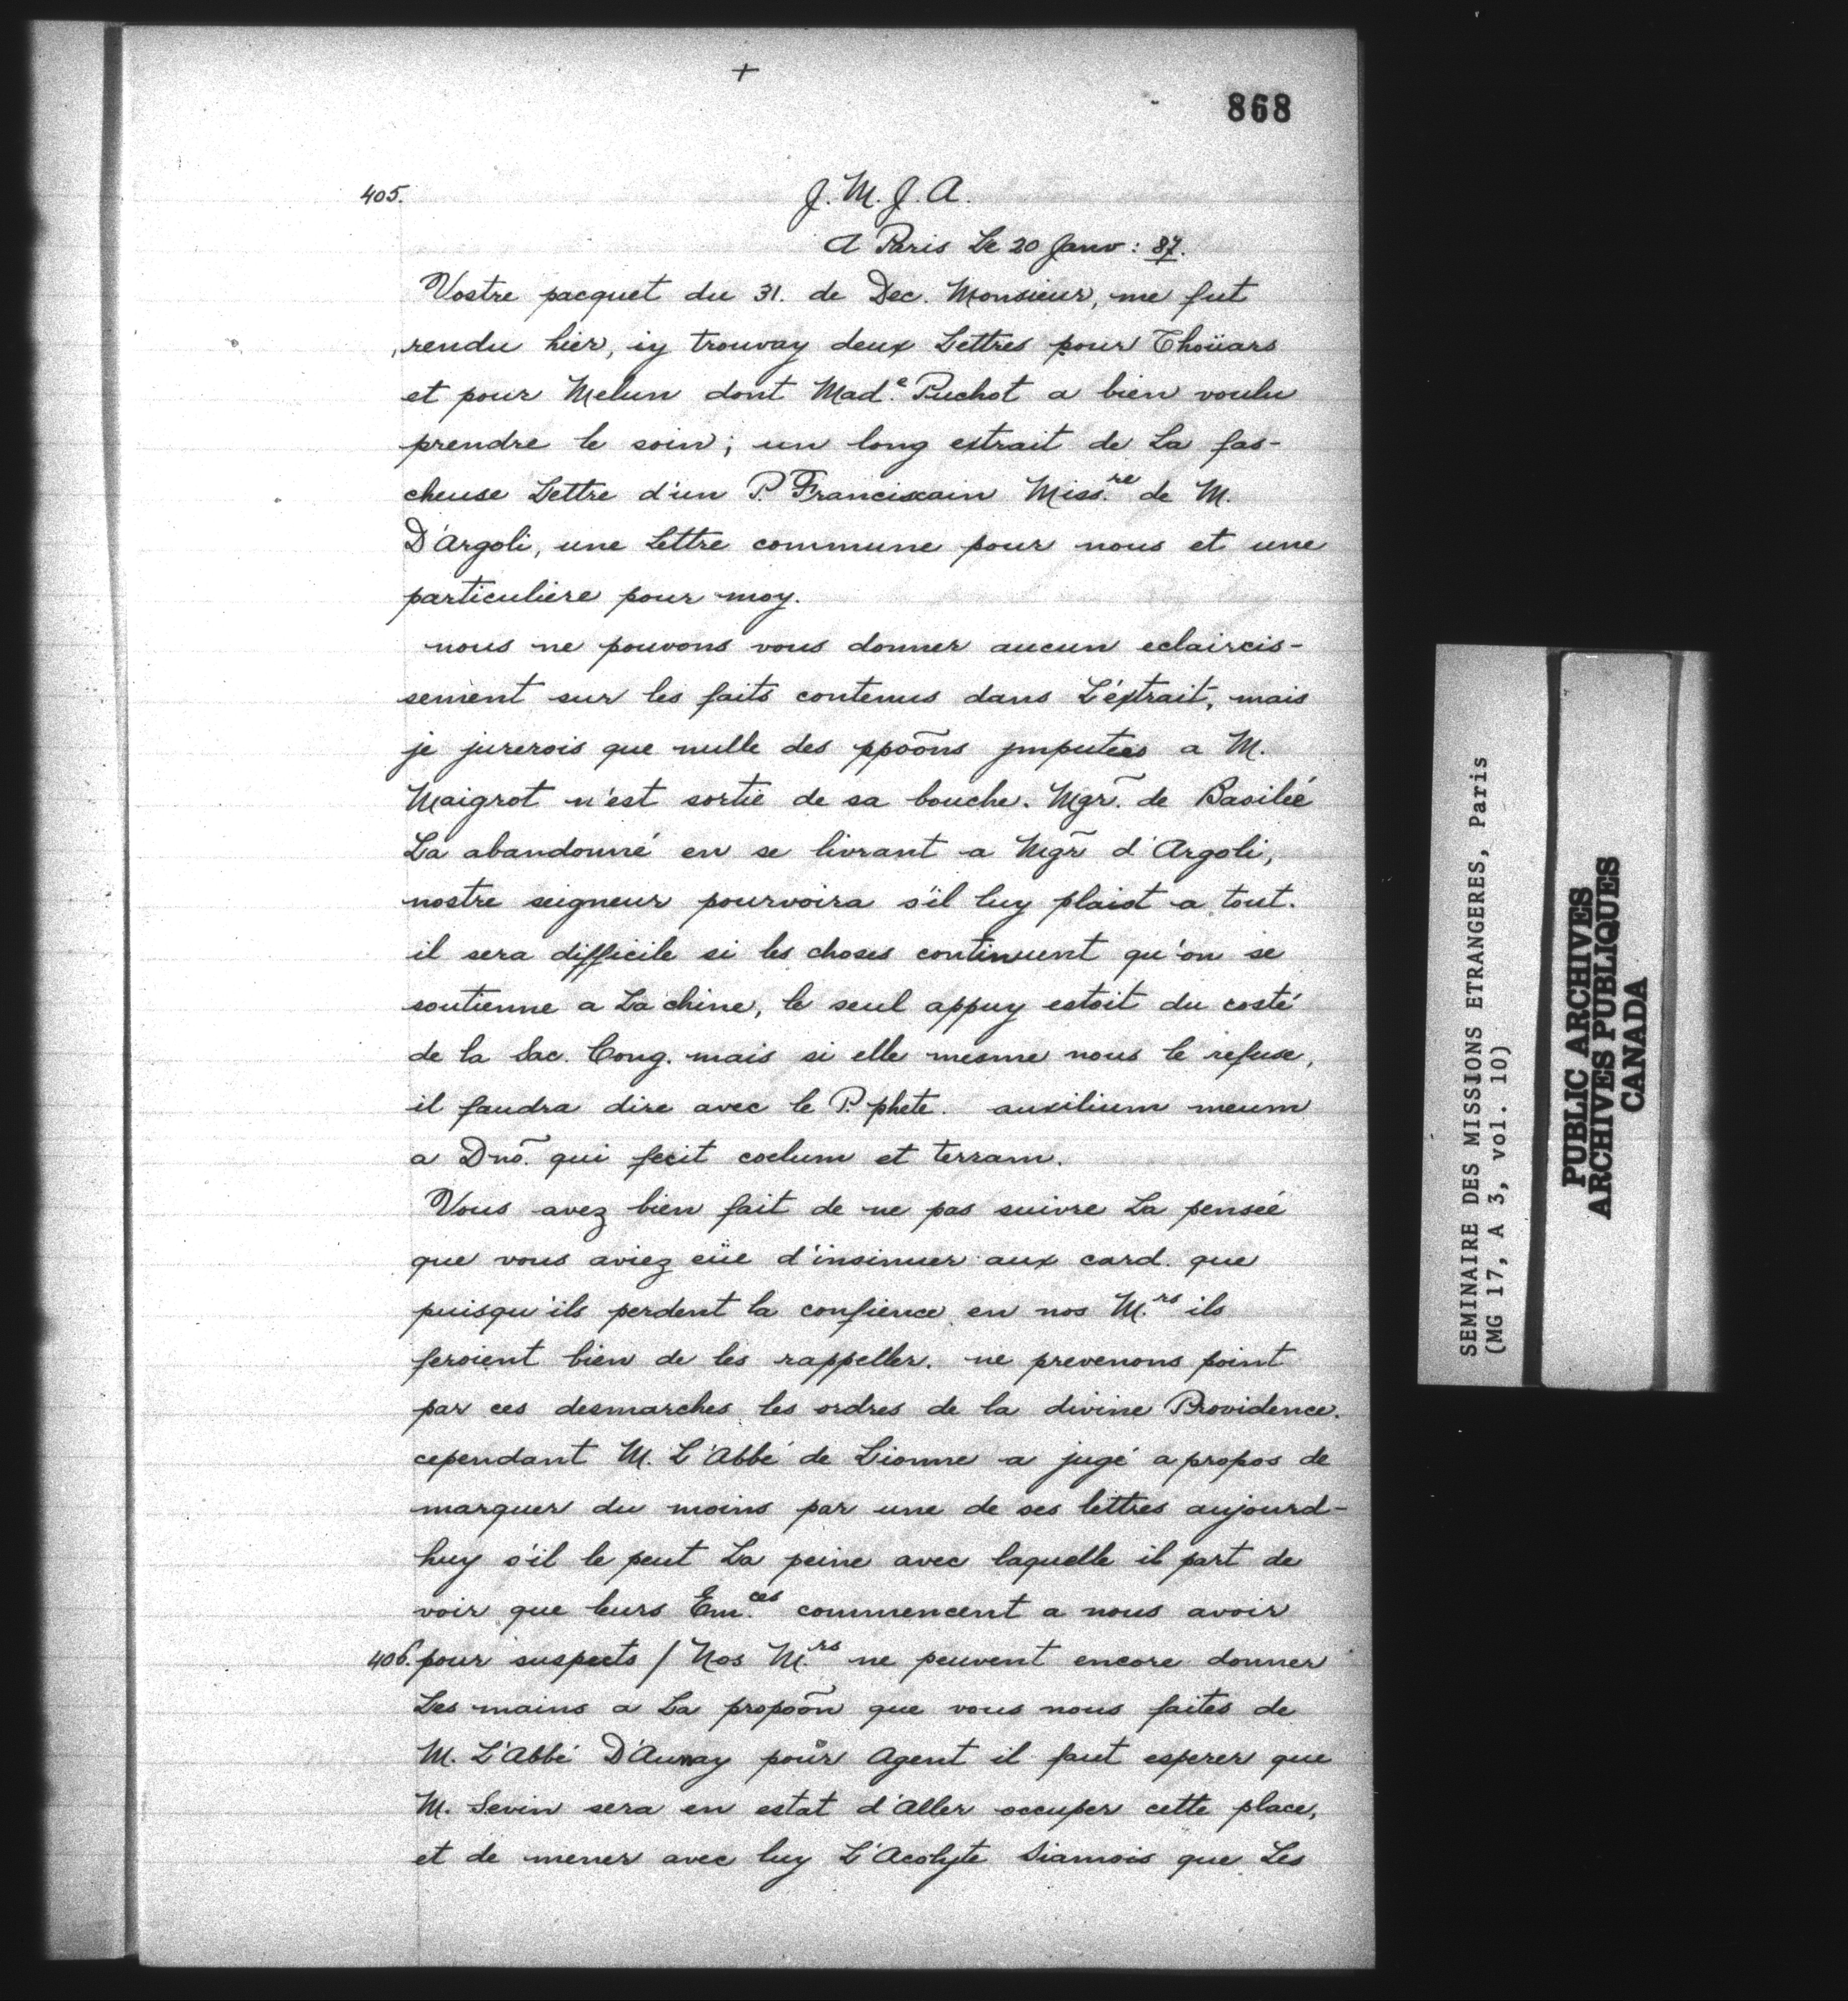 +
868
405.
J. M. J. A.
A Paris Le 20 Janv : 87.
Vostre pacquet du 31. de Dec. Monsieur, me fut
rendu hier, iy trouvay deux Lettres pour Thoüars
et pour Melun dont Mad.e Puchot a bien voulu
prendre le soin ; un long extrait de La fas-
cheuse Lettre d'un P. Franciscain Miss.re de M.
D'Argoli, une Lettre commune pour nous et une
particuliere pour moy.
nous ne pouvons vous donner aucun eclaircis-
sement sur les faits contenus dans L'éxtrait, mais
je jurerois que nulle des ppoõns jmputees a M.
Maigrot n'est sortie de sa bouche. Mgr̃. de Basileé
La abandonné en se livrant a Mgr̃ d'Argoli,
nostre seigneur pourvoira s'il luy plaist a tout.
il sera difficile si les choses continuent qu'on se
soutienne a La chine, le seul appuy estoit du costé
de la Sac. Cong. mais si elle mesme nous le refuse,
il faudra dire avec le P.phete. auxilium meum
a Dnõ. qui fecit coelum et terram.
Vous avez bien fait de ne pas suivre La penseé
que vous aviez eüe d'insinuer aux card. que
puisqu'ils perdent la confience en nos M.rs ils
feroient bien de les rappeller. ne prevenons point
par ces desmarches les ordres de la divine Providence.
cependant M. L'Abbé de Lionne a jugé a propos de
marquer du moins par une de ses lettres aujourd-
huy s'il le peut La peine avec laquelle il part de
voir que leurs Em.ces commencent a nous avoir
406. pour suspects / Nos M.rs ne peuvent encore donner
Les mains a La propoõn que vous nous faites de
M. L'Abbé D'Aunay pour Agent il faut esperer que
M. Sevin sera en estat d'Aller occuper cette place,
et de mener avec luy L'Acolyte Siamois que Les
SEMINAIRE DES MISSIONS ETRANGERES, Paris
(MG 17, A 3, vol. 10)
PUBLIC ARCHIVES
ARCHIVES PUBLIQUES
CANADA